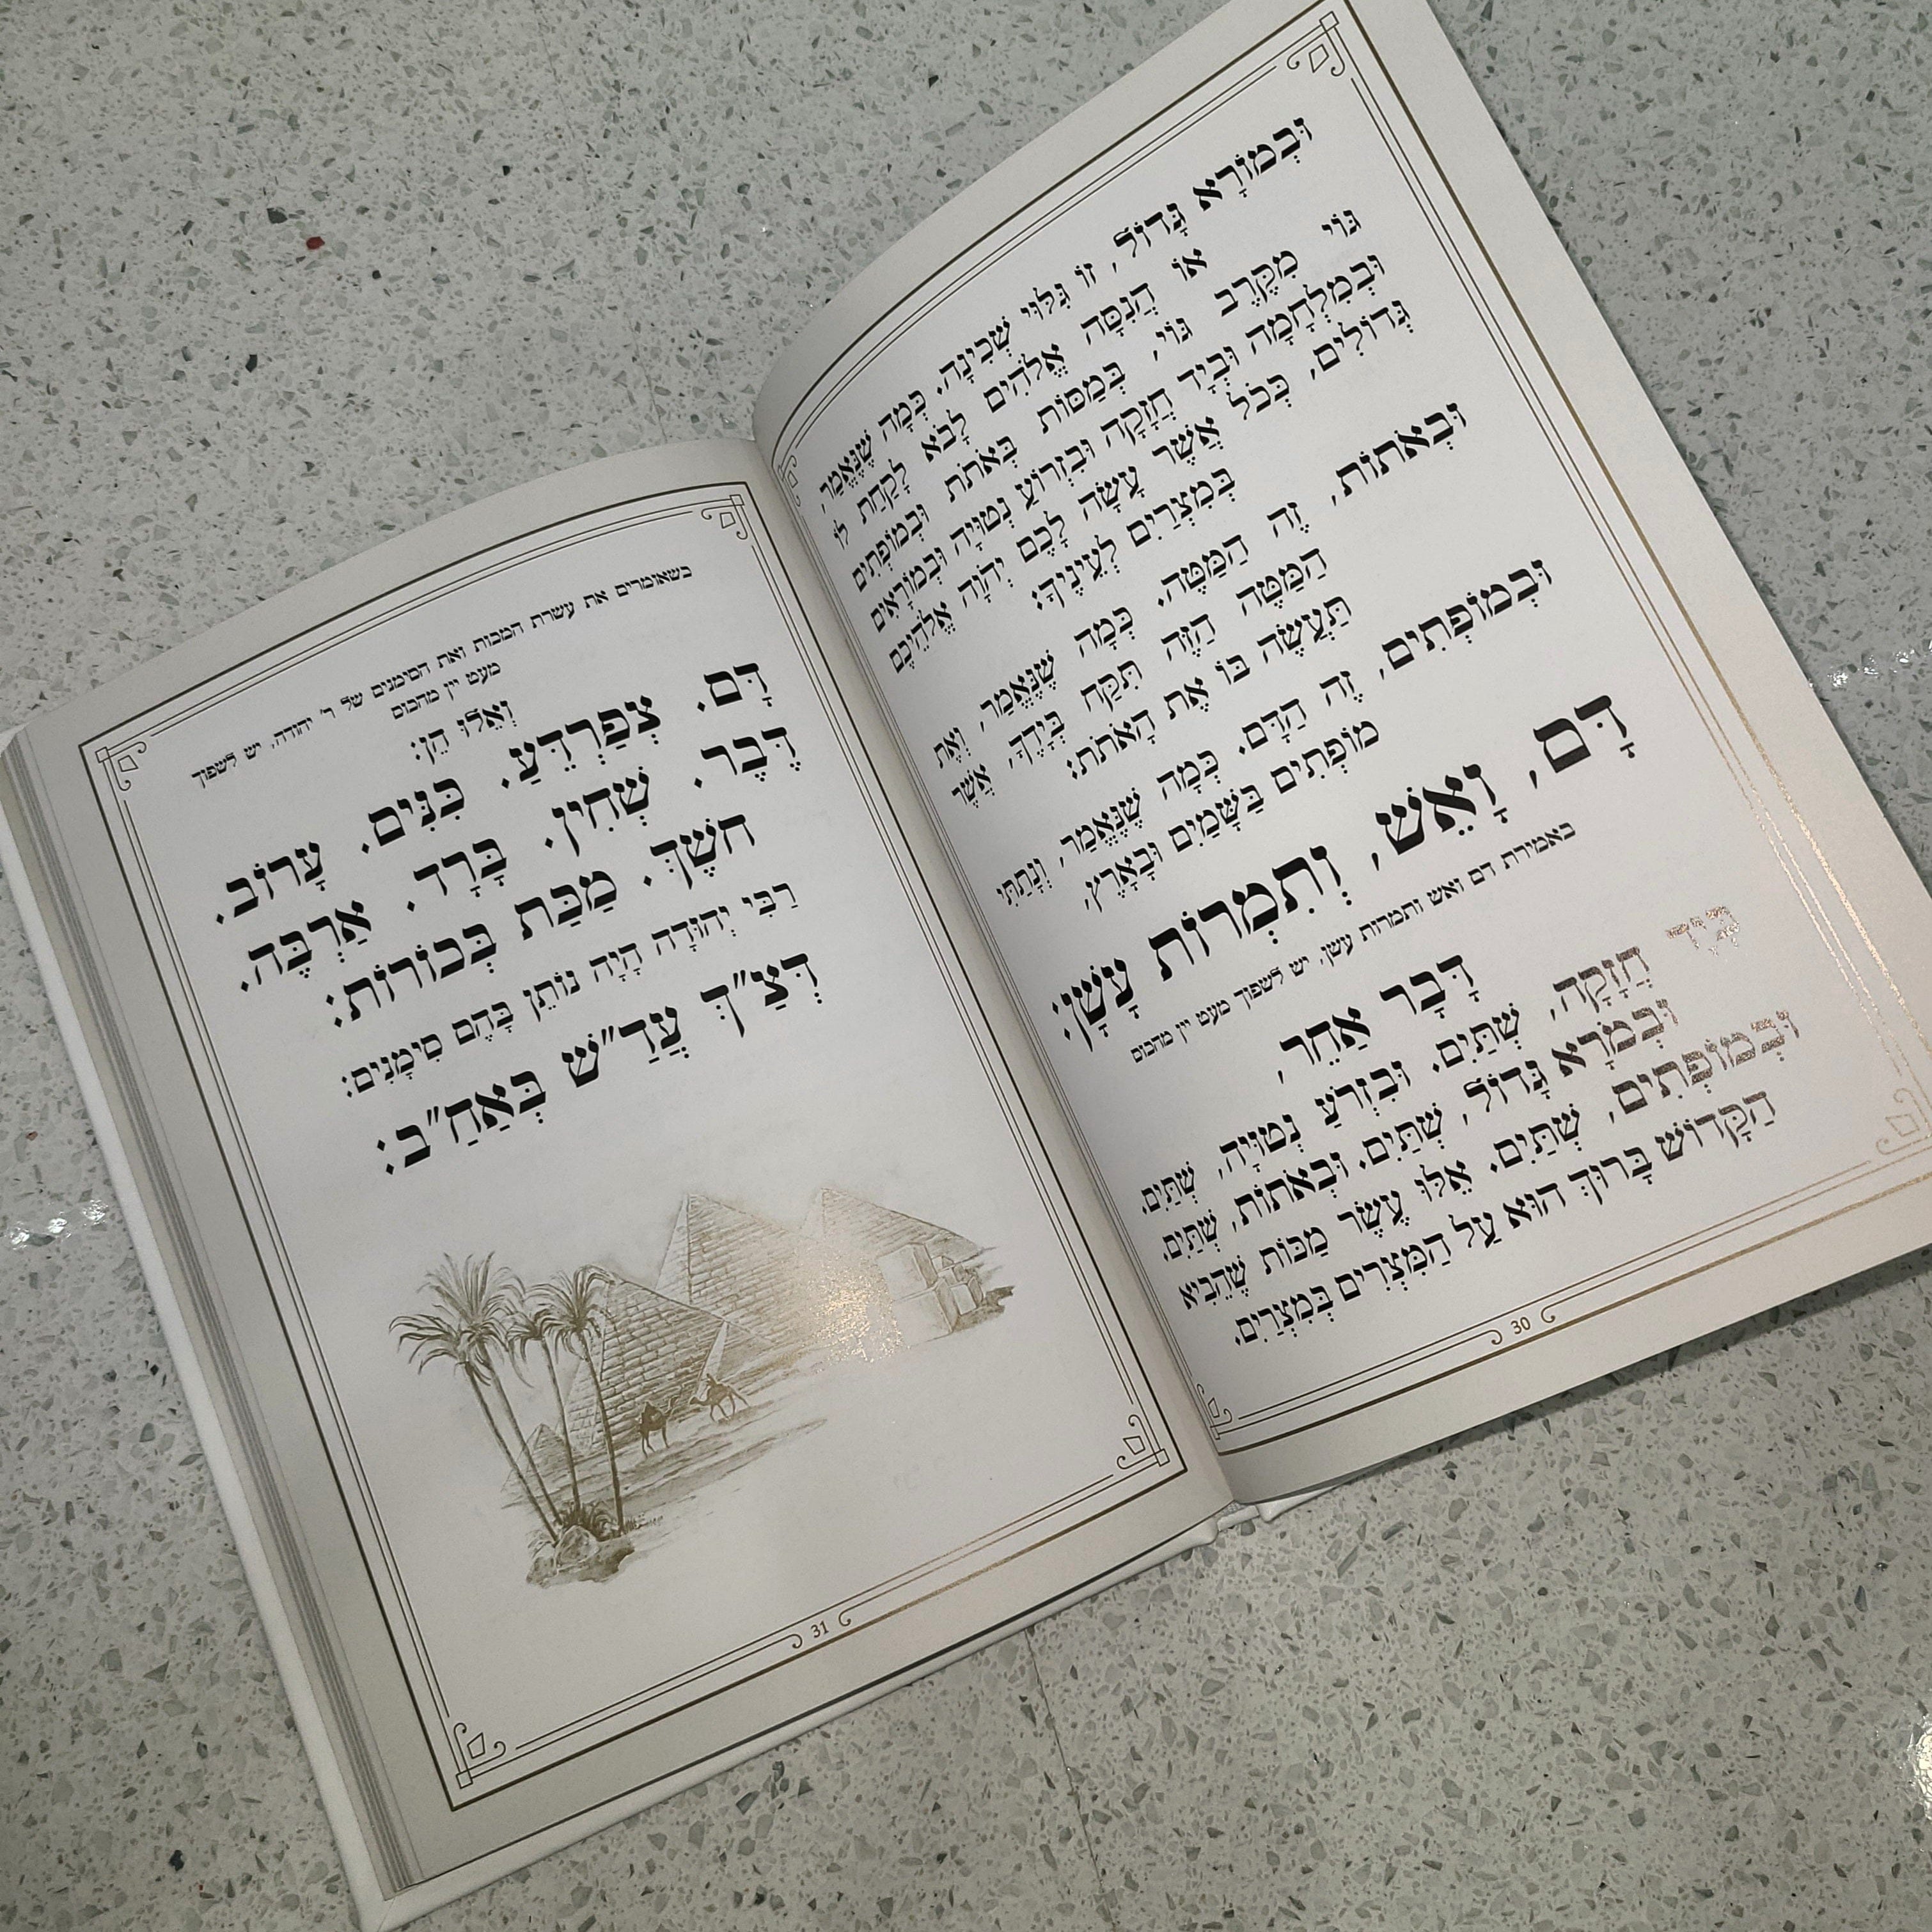 וּבְמוֹרָא גָּדוֹל, זוֹ גִּלּוּי שְׁכִינָה. כְּמָה שֶׁנֶּאֱמַר,
אוֹ הֲנִסָּה אֱלֹהִים לָבֹא לָקַחַת לוֹ
גוֹי מִקֶּרֶב גּוֹי, בְּמַסּוֹת בְּאֹתֹת וּבְמוֹפְתִים
וּבְמִלְחָמָה וּבְיָד חֲזָקָה וּבִזְרוֹעַ נְטוּיָה וּבְמוֹרָאִים
גְּדוֹלִים, כְּכֹל אֲשֶׁר עָשָׂה לָכֶם יְהֹוָה אֱלֹהֵיכֶם
בְּמִצְרַיִם לְעֵינֶיךָ:
וּבְאֹתוֹת, זֶה הַמַּטֶּה. כְּמָה שֶׁנֶּאֱמַר, וְאֶת
הַמַּטֶּה הַזֶּה תִּקַּח בְּיָדֶךָ, אֲשֶׁר
תַּעֲשֶׂה בּוֹ אֶת הָאֹתֹת:
וּבְמוֹפְתִים, זֶה הַדָּם. כְּמָה שֶׁנֶּאֱמַר, וְנָתַתִּי
מוֹפְתִים בַּשָּׁמַיִם וּבָאָרֶץ,
דָּם, וָאֵשׁ, וְתִמְרוֹת עָשָׁן:
באמירת דם ואש ותמרות עשן, יש לשפוך מעט יין מהכוס
דָּבָר אַחֵר,
בְּיָד חֲזָקָה, שְׁתַּיִם. וּבִזְרֹעַ נְטוּיָה, שְׁתַּיִם.
וּבְמֹרָא גָּדוֹל, שְׁתַּיִם. וּבְאֹתוֹת, שְׁתַּיִם.
וּבְמוֹפְתִים, שְׁתַּיִם. אֵלּוּ עֶשֶׂר מַכּוֹת שֶׁהֵבִיא
הַקָּדוֹשׁ בָּרוּךְ הוּא עַל הַמִּצְרִים בְּמִצְרַיִם.
30
כשאומרים את עשרת המכות ואת הסימנים של ר' יהודה, יש לשפוך
מעט יין מהכוס
וְאֵלּוּ הֵן:
דָּם. צְפַרְדֵּעַ. כִּנִּים. עָרוֹב.
דֶּבֶר. שְׁחִין. בָּרָד. אַרְבֶּה.
חֹשֶׁךְ. מַכַּת בְּכוֹרוֹת:
רַבִּי יְהוּדָה הָיָה נוֹתֵן בָּהֶם סִימָנִים:
דְּצַ"ךְ עֲדַ"שׁ בְּאַחַ"ב:
31